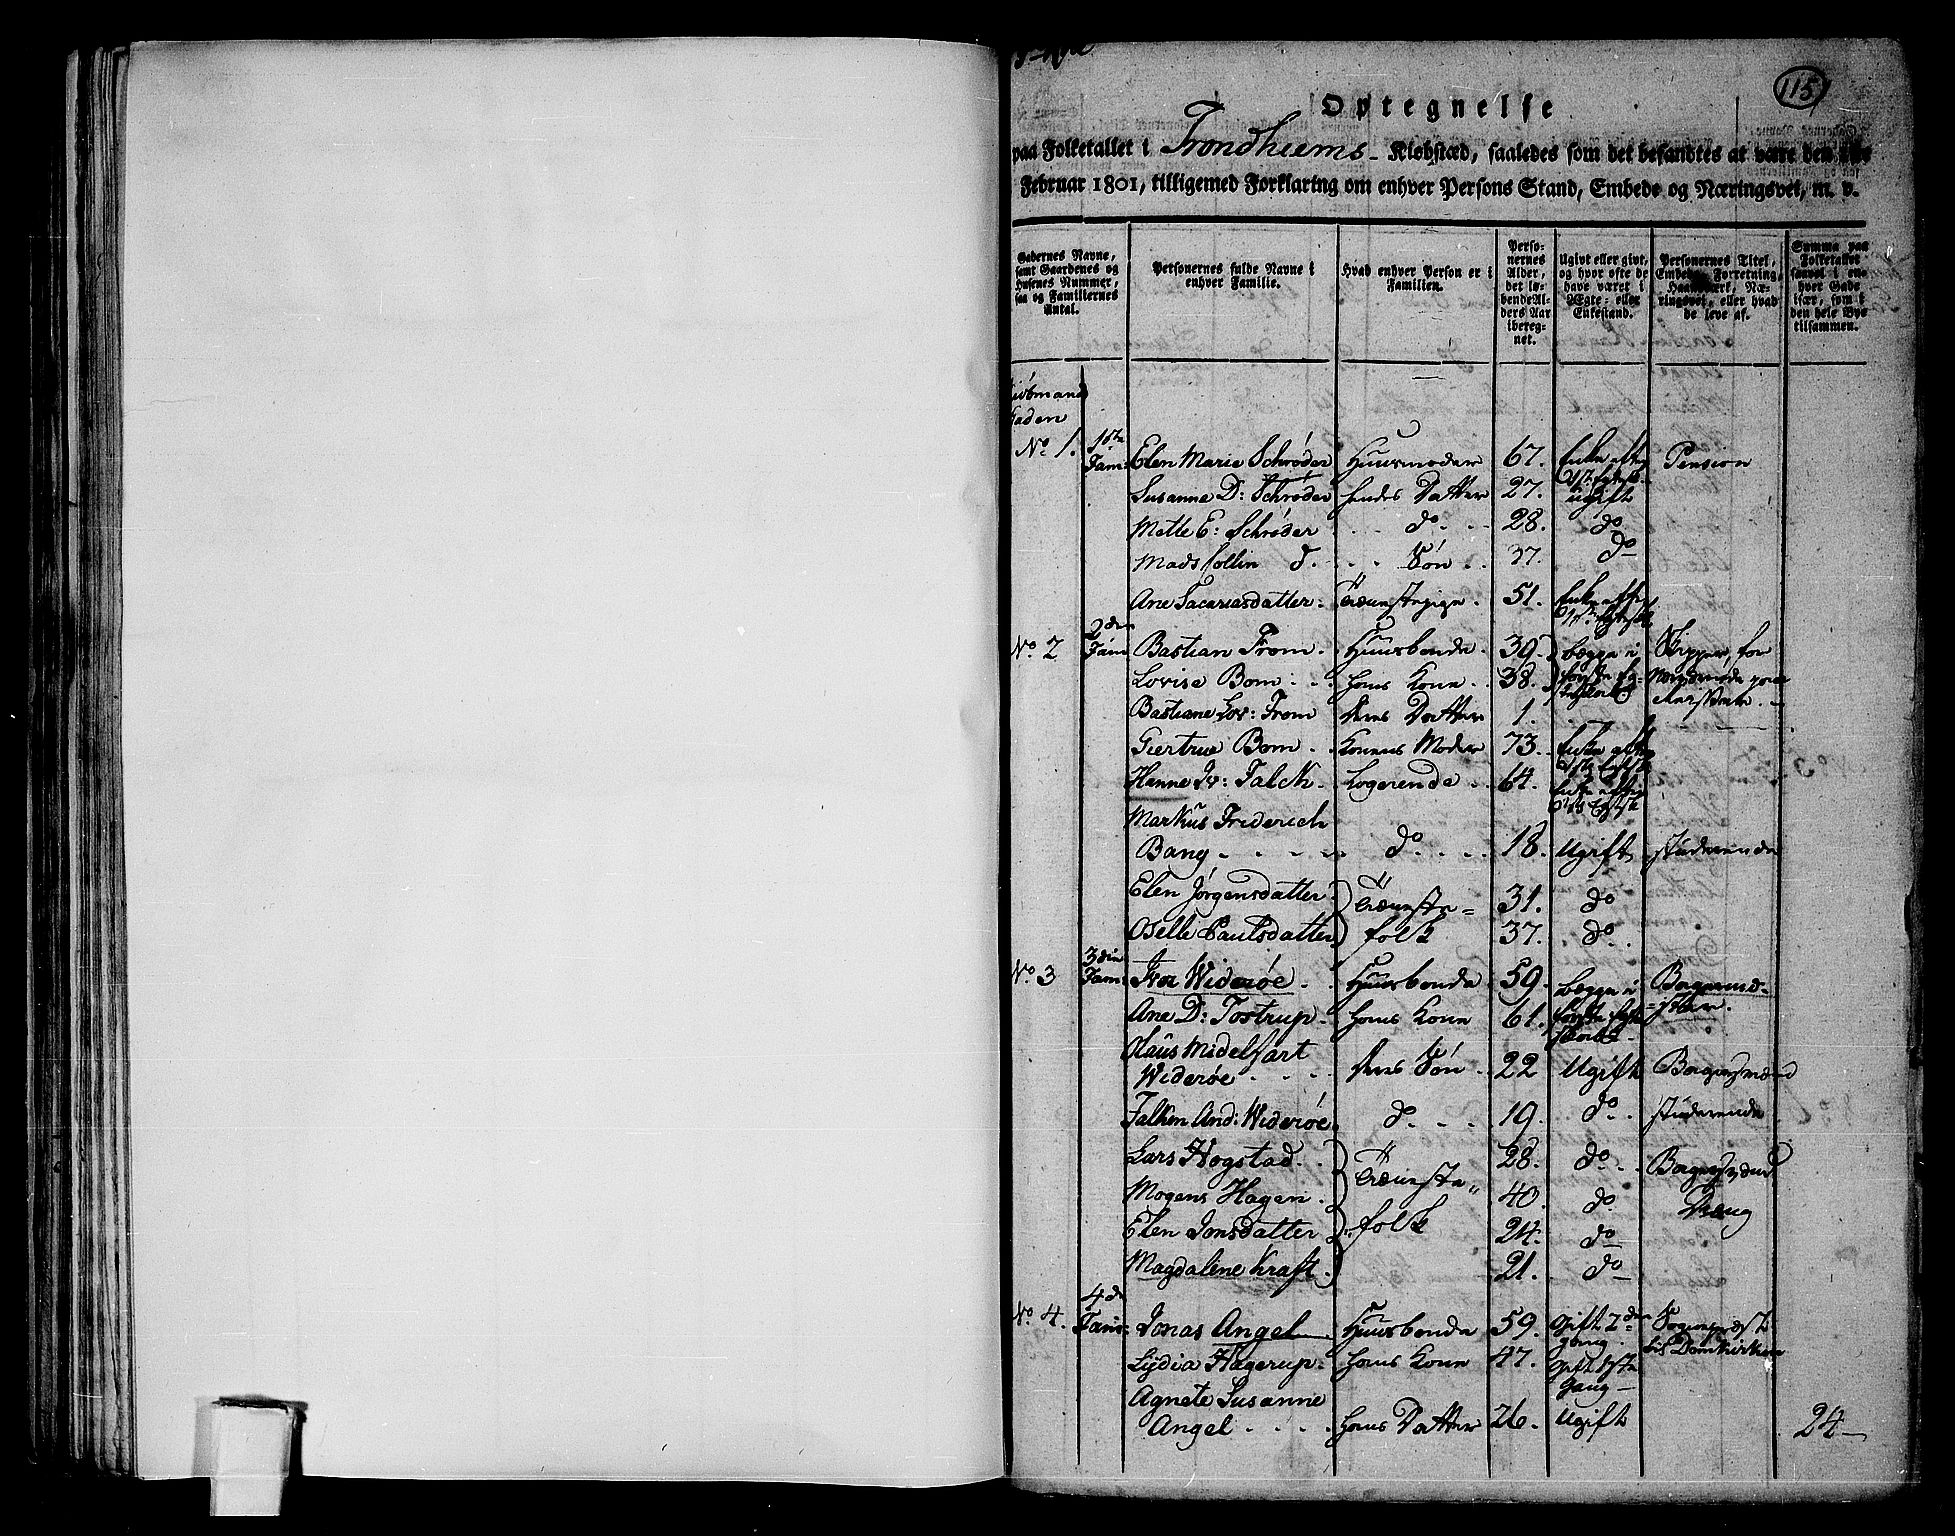 115
Optegnelse
paa Folketallet i Trondhiems Kiøbstæd, saaledes som det befandtes at være den 1ste
Februar 1801, tilligemed Forklaring om enhver Persons Stand, Embede og Næringsvei, m. v.
Gadernes Navne, samt Gaardenes og Husenes Nummer, saa og Familiernes Antal.
Personernes fulde Navne i enhver Familie.
Hvad enhver Person er i Familien.
Personernes Alder, det løbende Alders Aar iberegnet.
Ugivt eller givt, og hvor ofte de have været i Ægte- eller Enkestand.
Personernes Titel, Embede, Forretning, Haandværk, Næringsvei, eller hvad de leve af.
Summa paa Folketallet saavel i enhver Gade især, som i den hele By tilsammen.
Kiøbmand
Gaden
No 1. 1ste Fam: Elen Marie Schrøder Huusmoder 67. Enke efter 1st Egtesk. Pension
Susanne D: Schrøder hendes Datter 27. ugift
Mette E: Schrøder do 28. do
Mads Collin d. Søn 37. do
Ane Sacariasdatter Tienestepige 51. Enke efter 1ste Egtesk.
No 2 2den Fam: Bastian From Huusbonde 39. begge i Skipper, for
Lovise Bom hans Kone 38. første Eg-
Bastiane Lov: From deres Datter 1.
Giertrue Bom Konens Moder 73. Enke efter 1ste Egtesk.
Hanne Iv: Falck Logerende 64. Enke efter 1ste Egtesk.
Markus Friderich
Bang do 18. Ugift studerende
Elen Jørgensdatter Tieneste= 31. do
Oselle Paulsdatter folk 37. do
No 3 3die Fam: Iver Widerøe Huusbonde 59. begge i Borgerme-
Ane D: Tostrup hans Kone 61. første Egte -ster.
Olaus Midelfart
Widerøe deres Søn 22 Ugift
Falken And: Widerøe do 19. do studerende
Lars Hogstad Tieneste= 28. do
Mogens Hagen 40. do Dreng
Elen Jonsdatter folk 24. do
Magdalene Kraft 21. do
No 4. 4de Fam: Jonas Angel Huusbonde 59. gift 2den Gang Sogneprest
Lydia Hagerup hans Kone 47. gift 1ste Gang til Domkirken
Agnete Susanne
Angel hans Datter 26. Ugift 24